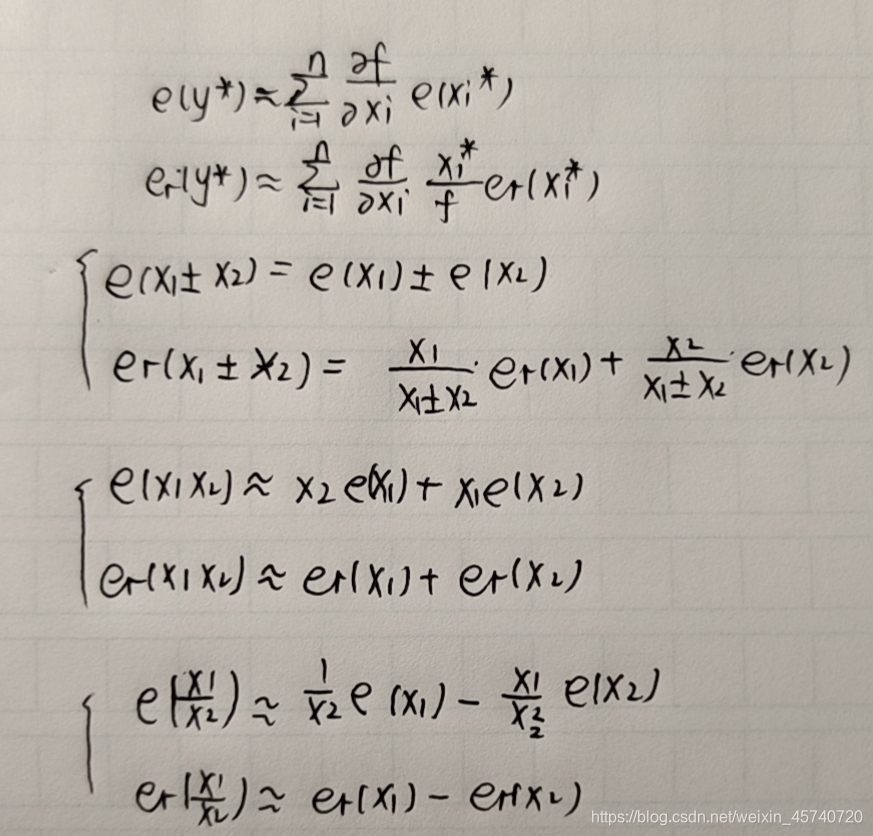 e(y*) ≈ \sum_{i=1}^{n} \frac{∂f}{∂xi} e(xi*)
er(y*) ≈ \sum_{i=1}^{n} \frac{∂f}{∂xi} \frac{xi*}{f} er(xi*)
e(x1 ± x2) = e(x1) ± e(x2)
er(x1 ± x2) = \frac{x1}{x1 ± x2} · er(x1) + \frac{x2}{x1 ± x2} · er(x2)
e(x1x2) ≈ x2 e(x1) + x1e(x2)
er(x1x2) ≈ er(x1) + er(x2)
e(\frac{x1}{x2}) ≈ \frac{1}{x2} e(x1) - \frac{x1}{x_2^2} e(x2)
er(\frac{x1}{x2}) ≈ er(x1) - er(x2)
https://blog.csdn.net/weixin_45740720